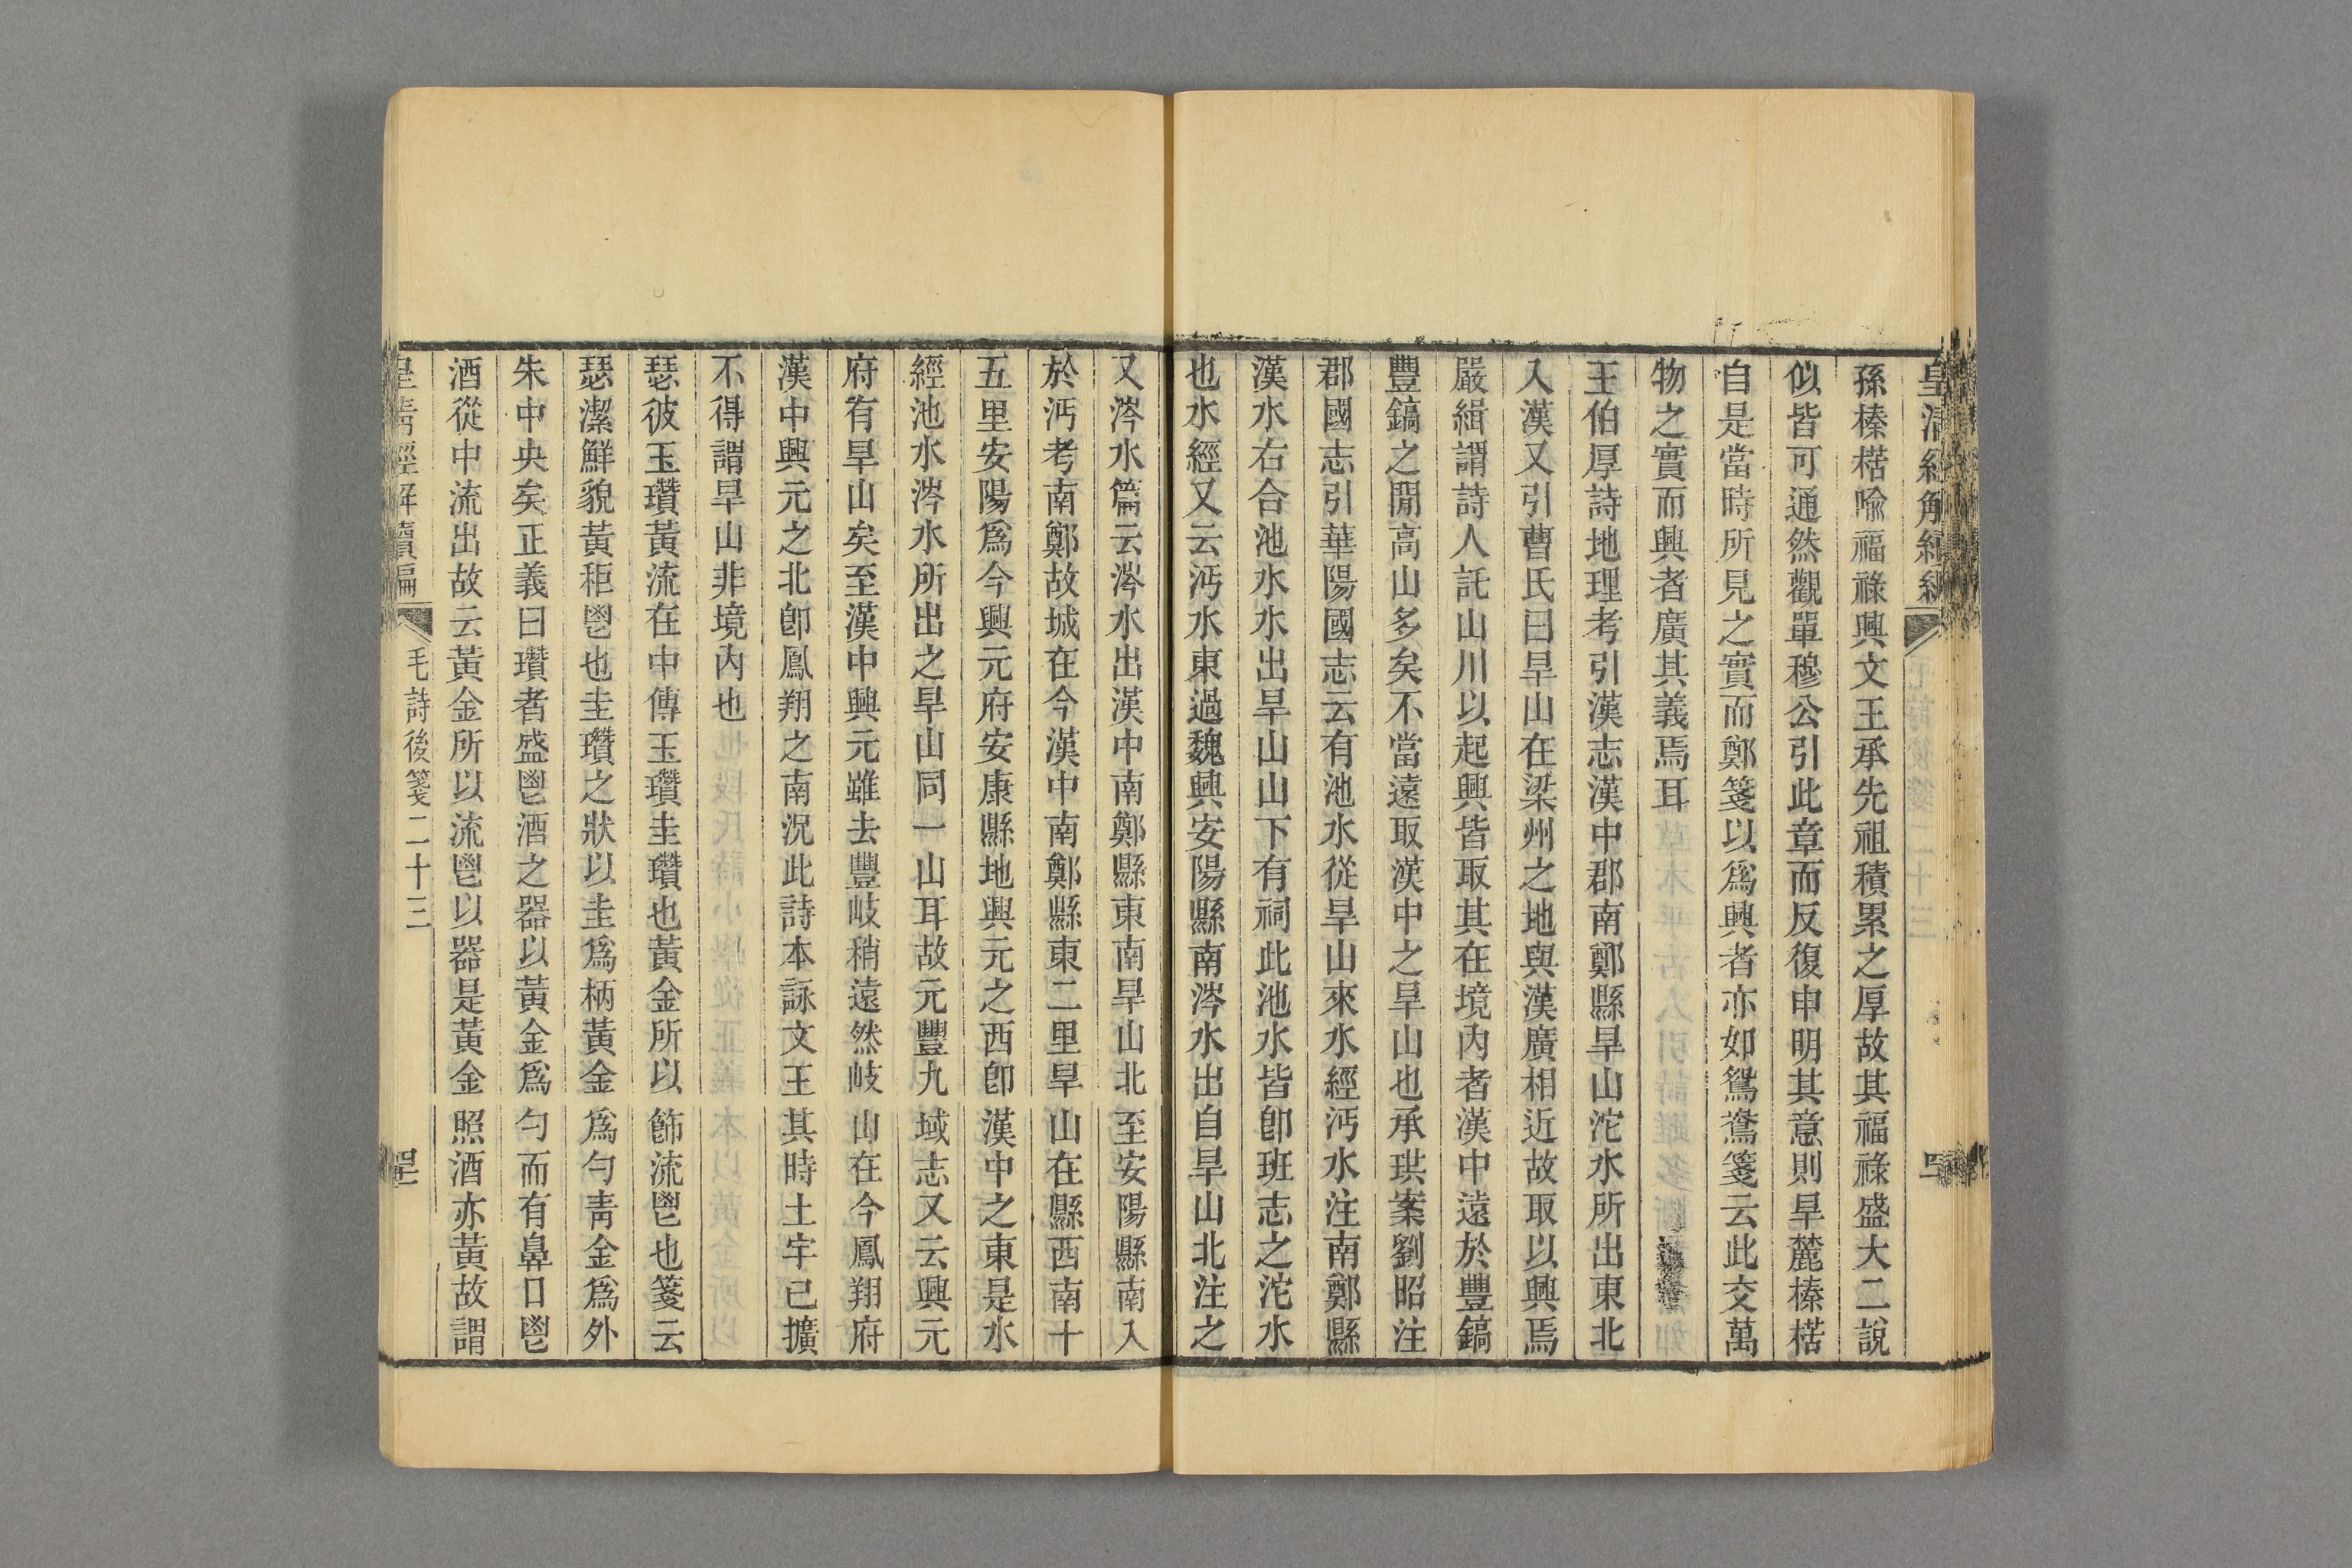 皇清經解續編
孫榛楛喻福祿興文王承先祖積累之厚故其福祿盛大二說
似皆可通然觀單穆公引此章而反復申明其意則旱麓榛楛
自是當時所見之實而鄭箋以爲興者亦如鴛鴦箋云此交萬
物之實而興者廣其義焉耳
王伯厚詩地理考引漢志漢中郡南鄭縣旱山沱水所出東北
入漢又引曹氏曰旱山在梁州之地與漢廣相近故取以興焉
嚴緝謂詩人託山川以起興皆取其在境內者漢中遠於豐鎬
豐鎬之閒高山多矣不當遠取漢中之旱山也承珙案劉昭注
郡國志引華陽國志云有池水從旱山來水經沔水注南鄭縣
漢水右合池水水出旱山山下有祠此池水皆卽班志之沱水
也水經又云沔水東過魏興安陽縣南涔水出自旱山北注之
又涔水篇云涔水出漢中南鄭縣東南旱山北至安陽縣南入
於沔考南鄭故城在今漢中南鄭縣東二里旱山在縣西南十
五里安陽爲今興元府安康縣地興元之西卽漢中之東是水
經池水涔水所出之旱山同一山耳故元豐九域志又云興元
府有旱山矣至漢中興元雖去豐岐稍遠然岐山在今鳳翔府
漢中興元之北卽鳳翔之南況此詩本詠文王其時土宇已擴
不得謂旱山非境內也
瑟彼玉瓚黃流在中傳玉瓚圭瓚也黃金所以飾流鬯也箋云
瑟潔鮮貌黃秬鬯也圭瓚之狀以圭爲柄黃金爲勺靑金爲外
朱中央矣正義曰瓚者盛鬯酒之器以黃金爲勺而有鼻口鬯
酒從中流出故云黃金所以流鬯以器是黃金照酒亦黃故謂
皇清經解續編
毛詩後箋二十三